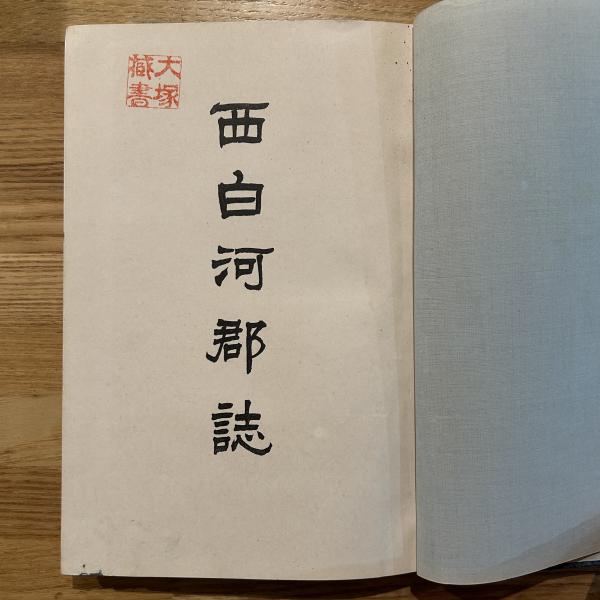 大塚
藏書
西白河郡誌